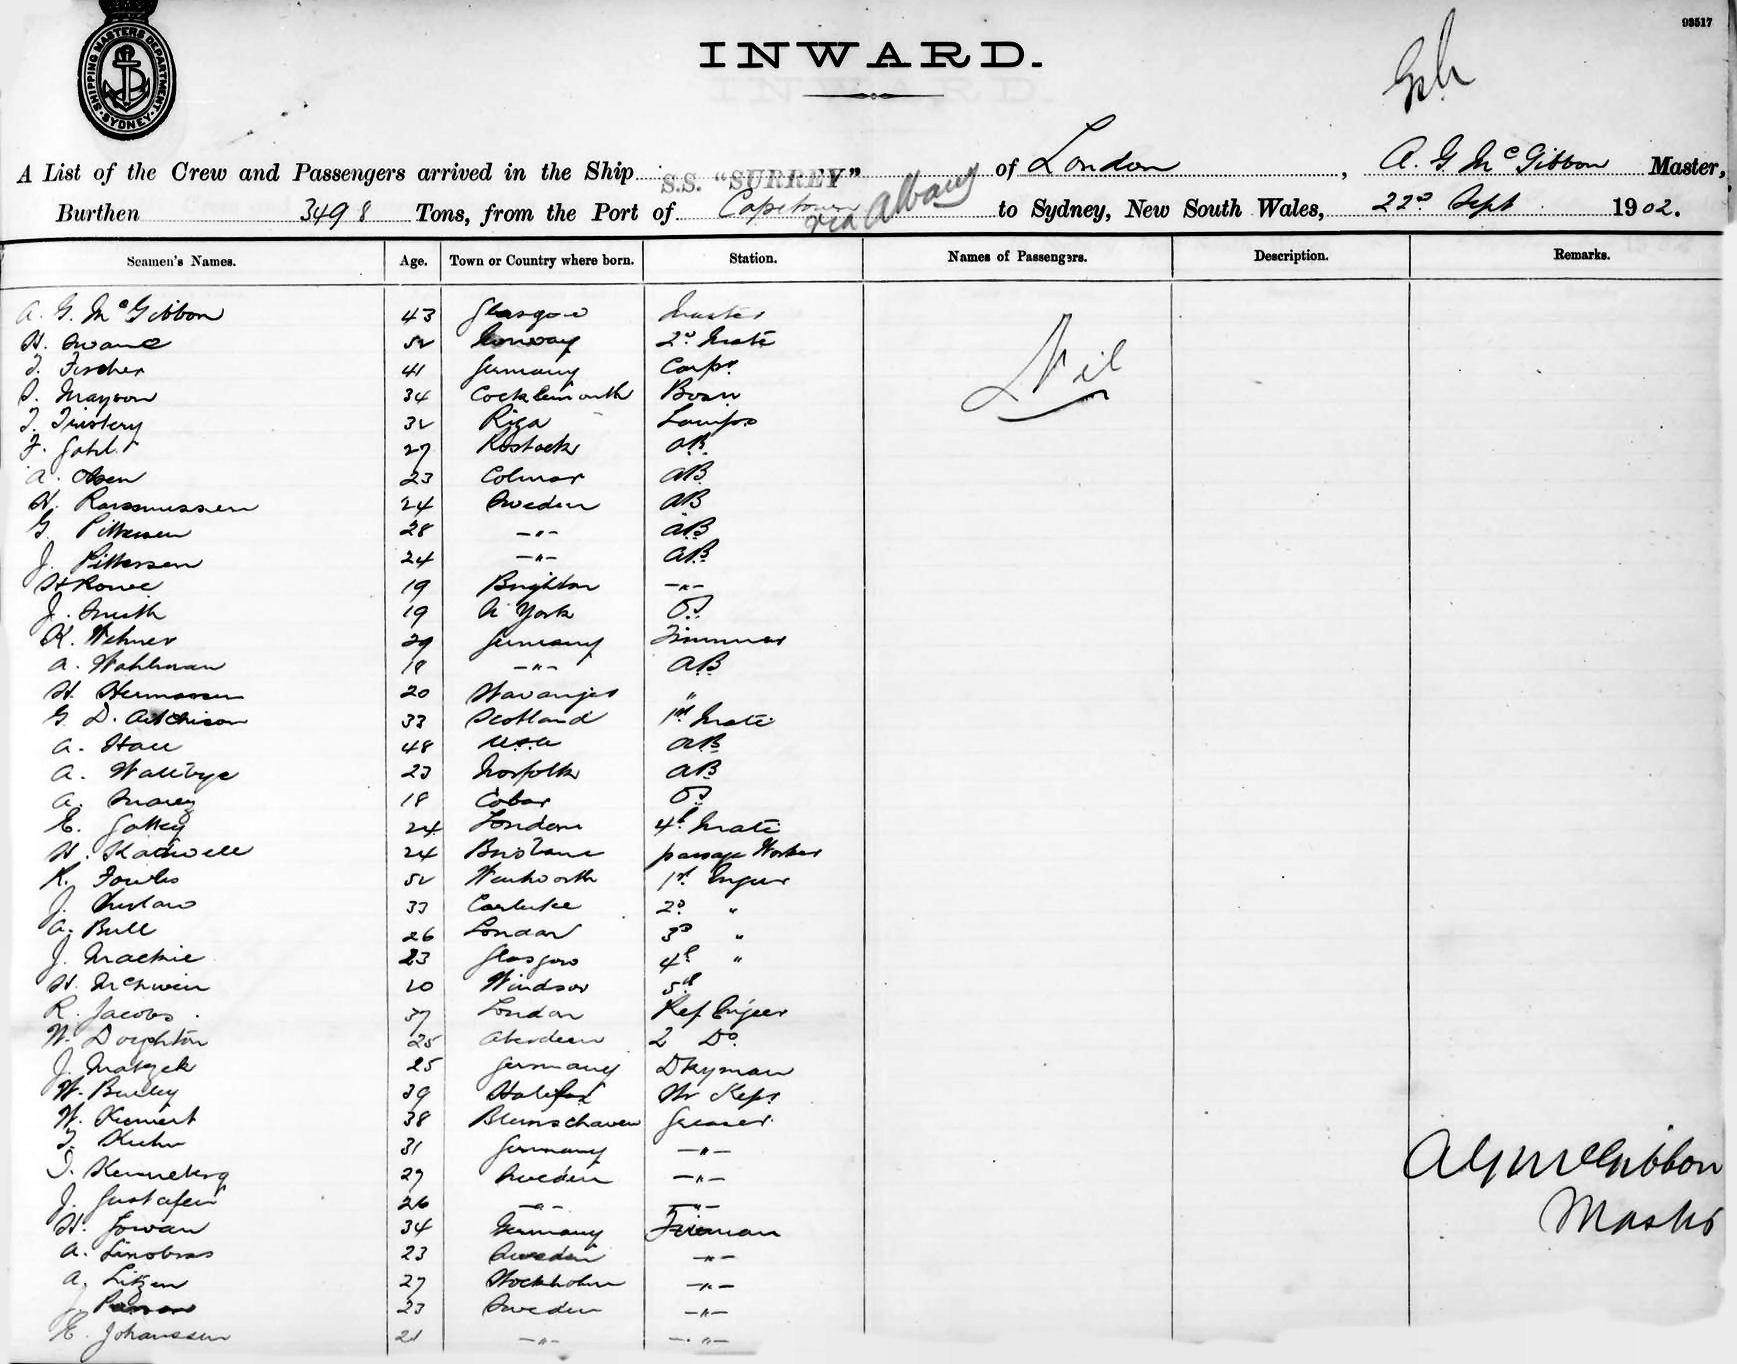 93517
SHIPPING MASTERS DEPARTMENT
SYDNEY
INWARD.
A List of the Crew and Passengers arrived in the Ship S.S. "SURREY" of London, A. G. McGibbon Master,
Burthen 3498 Tons, from the Port of Capetown via Albany to Sydney, New South Wales, 22d Sept 1902.
Seamen's Names. Age. Town or Country where born. Station. Names of Passengers. Description. Remarks.
A. G. McGibbon 43 Glasgow Master Nil
H. 52 Norway 2nd Mate
T. Fischer 41 Germany Carpr
34 Cockermouth Bosn
T. 32 Riga Lamps
F. 27 Rostock AB
A. Olsen 23 Colmar AB
H. Rassmussen 24 Sweden AB
G. Pettersen 28 -"- AB
J. Pettersen 24 -"- AB
H Rowe 19 Brighton -"-
J. Smith 19 N York OS
K. Wehner 29 Germany Trimmer
A. Wohlman 18 -"- AB
H. Hermansen 20 Stavanger "
G. D. Aitchison 33 Scotland 1st Mate
A. 48 USA AB
A. 23 Norfolk AB
A. 18 Cobar OS
E. 24 London 4th Mate
H. 24 Brisbane passage Worker
R. Fowles 52 Wentworth 1st Engeer
J. 33 Carluke 2d "
A. Bull 26 London 3d "
J. Mackie 23 Glasgow 4th "
H. 20 Windsor 5th
R. Jacobs 37 London Ref Engeer
W. 25 Aberdeen 2 Do
J. 25 Germany Dkyman
W. 39 Halifax Str Kepr
W. 38 Greaser
T. Kuhn 31 Germany -"-
27 Sweden -"-
J. Gustafsen 26 -"- -"-
H. 34 Germany Fireman
A. 23 Sweden -"-
A. 27 Stockholm -"-
J. 23 Sweden -"-
E. Johanssen 21 -"- -"-
A G McGibbon
Master